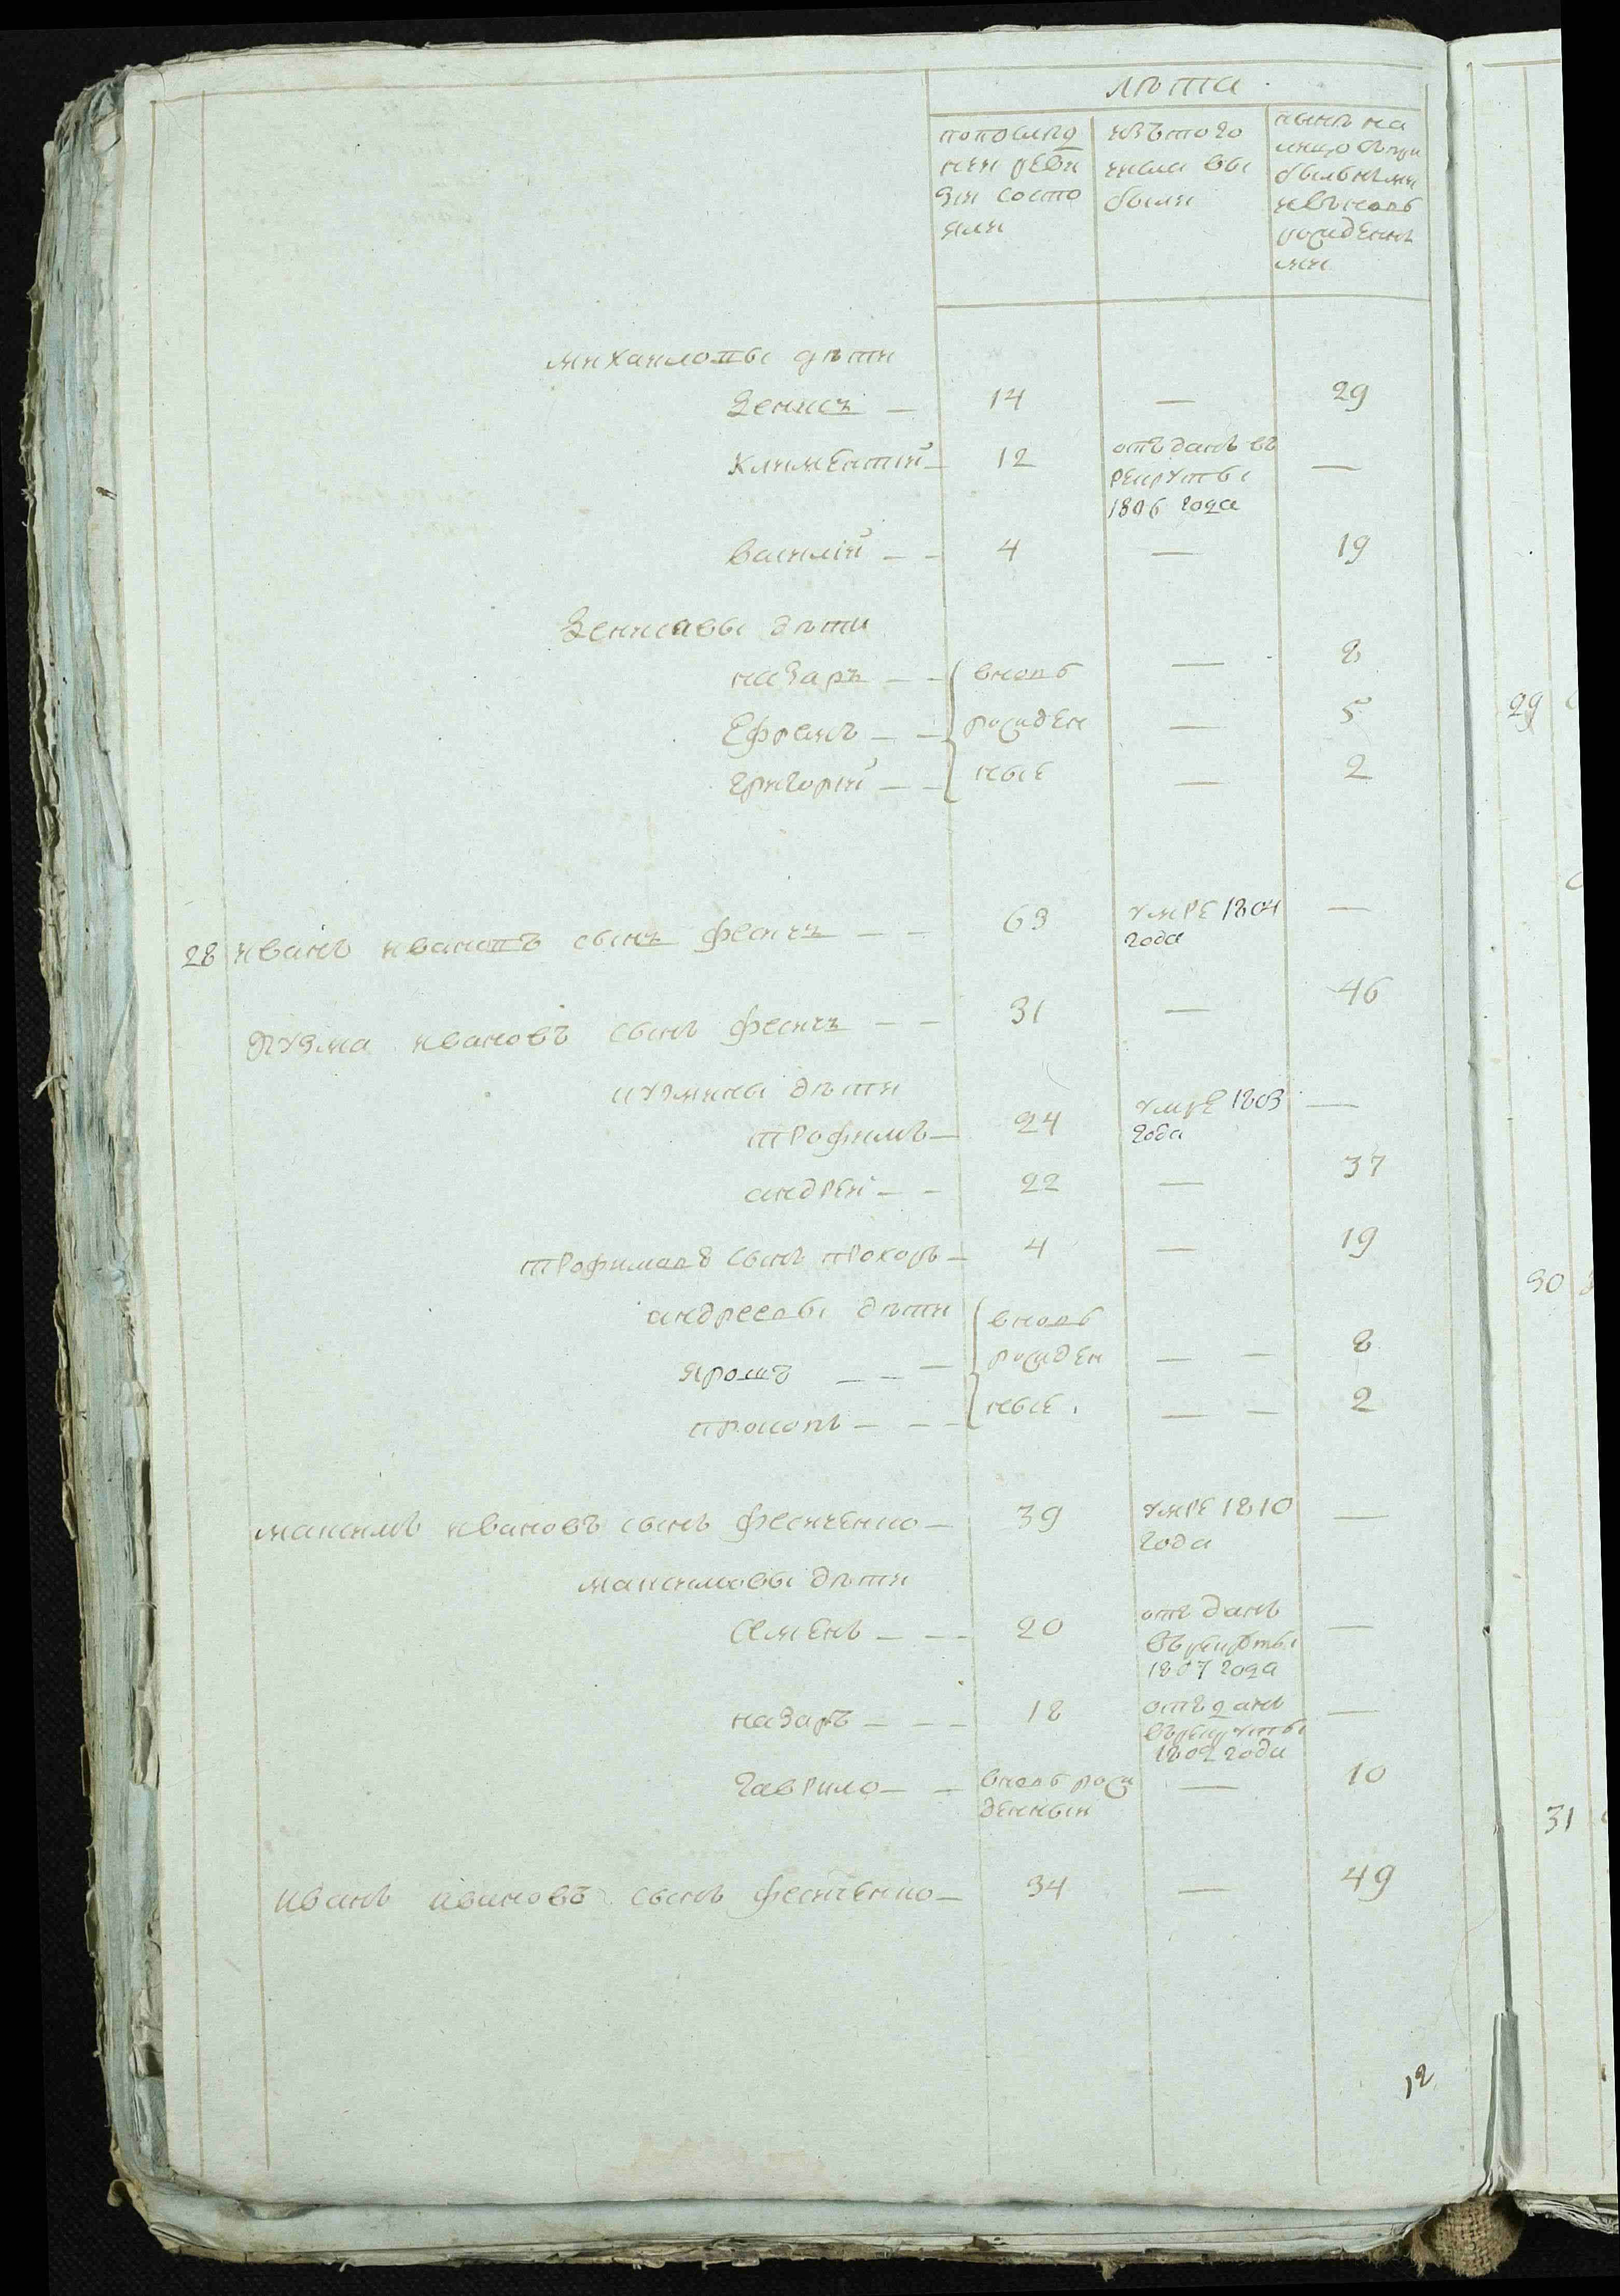 лѣта
по послѣд
ней реви
зіи состо
яли
изъ того
числа вы
были
нынѣ на
лицо съ при
былыми
и вновь
рожденны
ми
михайловы дѣти
Денисъ — 14 — 29
климентій — 12 отъданъ въ —
рекруты
1806 года
василій — — 4 — 19
Денисовы дѣти
назаръ — — вновь — 8
Ефремъ — — рожден — 5
григорій — — ные — 2
28 иванъ ивановъ сынъ фесичъ — — 63 умре 1804 —
года
кузма ивановъ сынъ фесичъ — — 31 — 46
кузмины дѣти
трофимъ — 24 умре 1803 —
года
андрей — — 22 — 37
трофимовъ сынъ прохоръ — 4 — 19
андреевы дѣти вновь
ярошъ — — — рожден — — 8
прокопъ — — — ные — — 2
максимъ ивановъ сынъ фесиченко — 39 умре 1810 —
года
максимовы дѣти
семенъ — — — 20 отъданъ —
въ рекруты
1807 года
назаръ — — — 18 отъданъ —
въ рекруты
1802 года
гаврило — — вновь рож — 10
денный
иванъ ивановъ сынъ фесиченко — 34 — 49
12
29
30
31